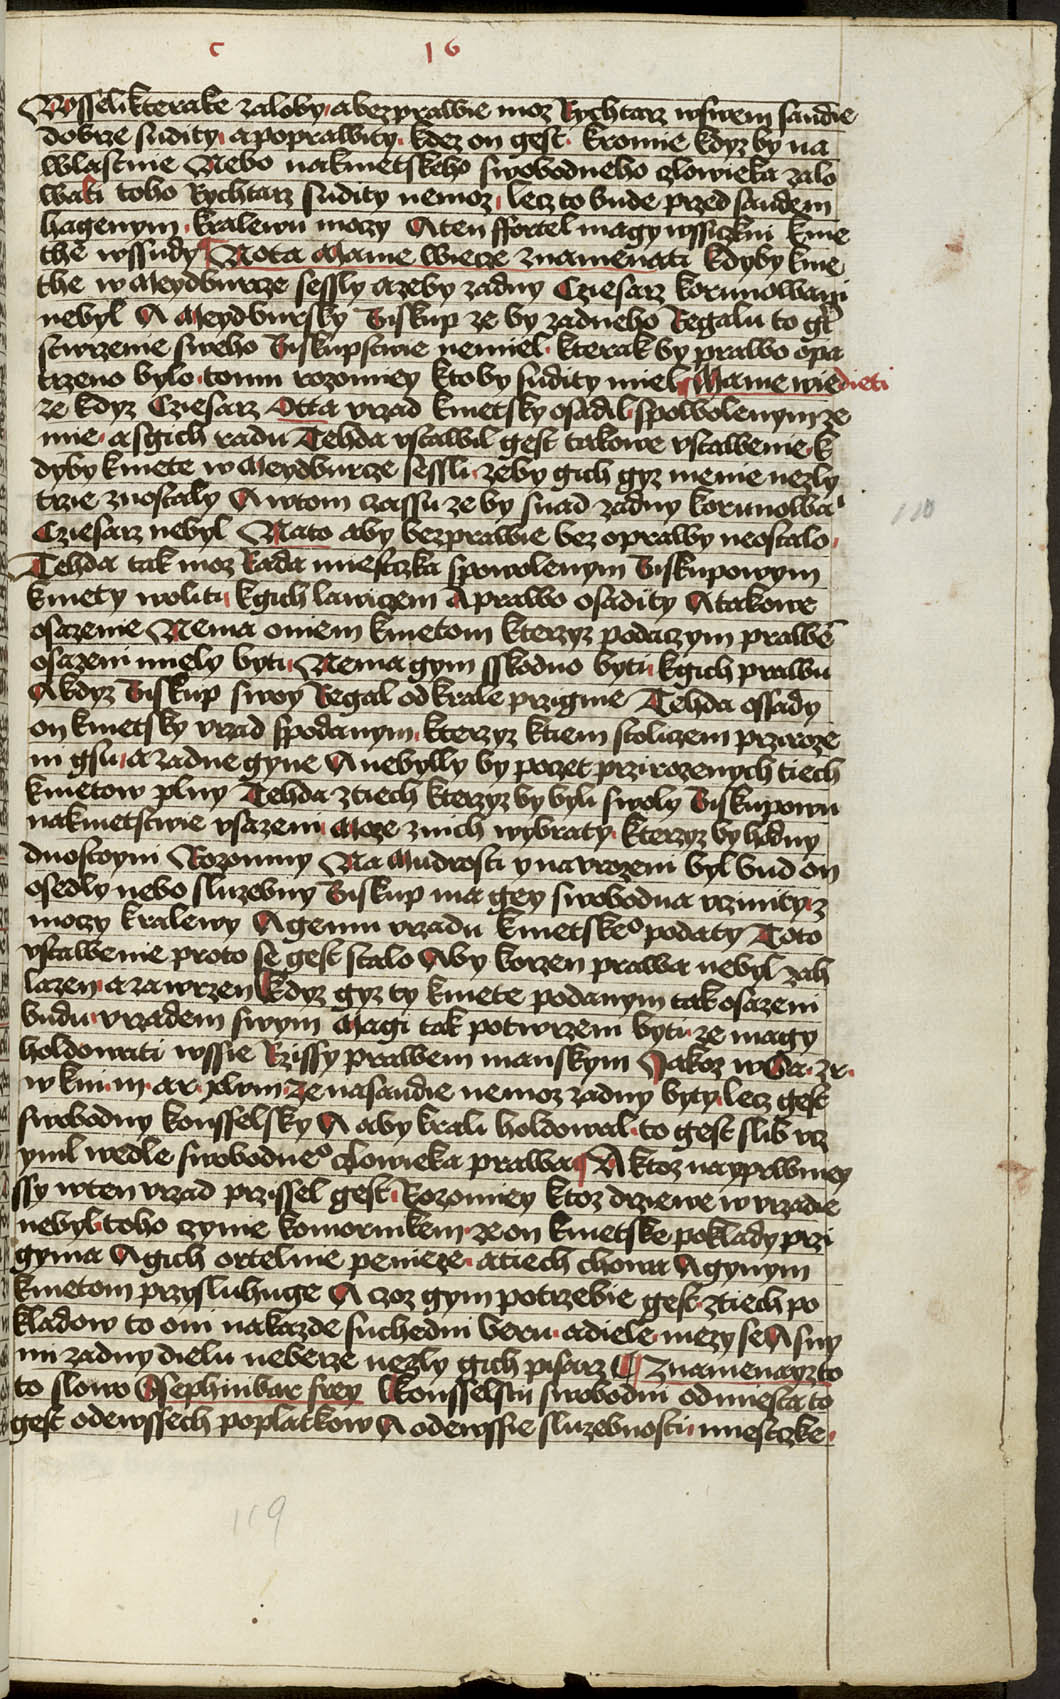 c 16
Wsselikterake zaloby a bezprawie moz Rychtarz wswem saudie
dobrze sudity a poprawity kdez on gest kromie kdyz by na
wlastnie Nebo nakmetskeho swobodneho czlowieka zalo
wali toho Rychtarz sudity nemoz lecz to bude przed saudem
hagenym kralewu moczy A ten ffortel magy wssiczkni kme
the wssudy Nota Mame wiecze znamenati kdyby kme
the w Meydburcze sessly a zeby zadny Cziesarz korunowany
nebyl A Meydbursky Biskup ze by zadneho Regalu to gt
stwrzenie sweho Biskupstwie nemiel kterak by prawo opa
trzeno bylo tomu rozomiey ktoby sudity miel Mame wiedieti
ze kdyz Cziesarz Otta vrzad kmetsky osadil s powolenym ze
mie a s gich radu Tehda vstawil gest takowe vstawenie k
dyby kmete w Meydburcze sessli zeby gich gyz menie nezly
trzie znostaly A w tom czassu ze by snad zadny korunowa
Cziesarz nebyl Nato aby bezprawie bez oprawy neostalo
Tehda tak moz Rada miestczka s powolenym Biskupowym
kmety woliti k gich lawiczem A prawo osadity A takowe
osazenie Nema oniem kmetom kterzyz podaczym prawe
osazeni miely byti Nema gym sskodno byti k gich prawu
A kdyz Biskup swoy Regal od krale przigme Tehda ossady
on kmetsky vrzad s podanym kterzyz k tiem stoliczem prziroze
ni gsu a zadne gyne A nebylly by poczet przirozenych tiech
kmetow plny Tehda z tiech kterzyz by byli swoly Biskupowu
na kmetstwie vsazeni Moze z nich wybraty kterzyz by hodny
dnostoyni Rozomny Na Mudrosti y na vrozeni byl bud on
osedly nebo sluzebny Biskup ma gey swobodna vczinity z
moczy kralewy A gemu vrzadu kmetskeo podaty Toto
vstawenie proto se gest stalo Aby korzen prawa nebyl zah
lazen a zawrzen kdyz gyz ty kmete podanym tak osazeni
budu vrzadem swym Magi tak potwrzeni byti ze magy
holdowati wssie Rzissy prawem manskym Jakoz w
w kni m ar xlvm ze na saudie nemoz zadny byty lecz gest
swobodny konsselsky A aby krali holdowal to gest slib vcz
ynil wedle swobodneo czlowieka prawa A ktoz nayprwniey
ssy w ten vrzad przissel gest Rozomiey ktoz drziewe w vrzadie
nebyl toho czynie komornikem ze on kmetske poklady przi
gyma A gich ortelnie penieze a tiech chowa A gynym
kmetom przysluhuge A czoz gym potrzebie gest z tiech po
kladow to oni na kazde suchedni beru a diele mezy se A s ny
mi zadny dielu neberze nezly gich pisarz Znamenayz to
to slowo Asephinbar frey konsselstii swobodni od miesta to
gest odewssech poplatkow A odewssie sluzebnosti miestczke
119